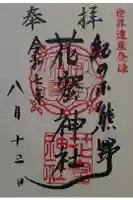 世界遺産登録
奉拝
紀の国熊野
花窟神社
令和七年
八月十二日